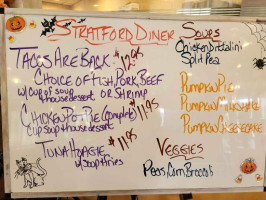 Stratford Diner
Soups
Chicken Pot Pie (Complete)
Cup Soup House Dessert
$11.95
Tacos Are Back $12.95
Choice of Fish, Pork, Beef
or Shrimp
w/ Cup of Soup
House Dessert
Tuna Hoagie $11.95
w/ Soup, Fries
Split Pea
Pumpkin Pie
Pumpkin Milkshake
Pumpkin Cheesecake
Veggies
Peas, Corn, Broccoli